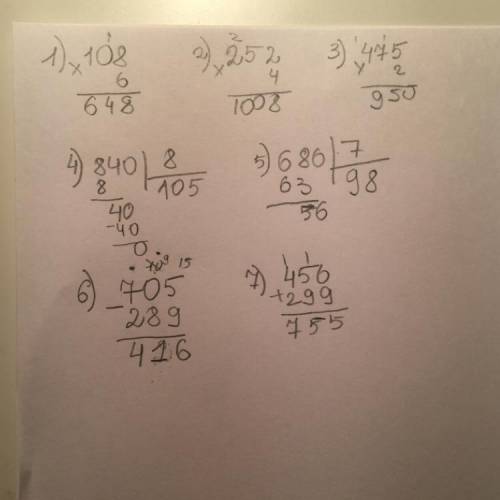 1) × 108   2) × 252   3) × 475
6   4   2
648   1008   950
4) 840 | 8   5) 686 | 7
8   105   63   98
40   56
-40
0
9 15
6) - 705   7) + 456
289   299
416   755